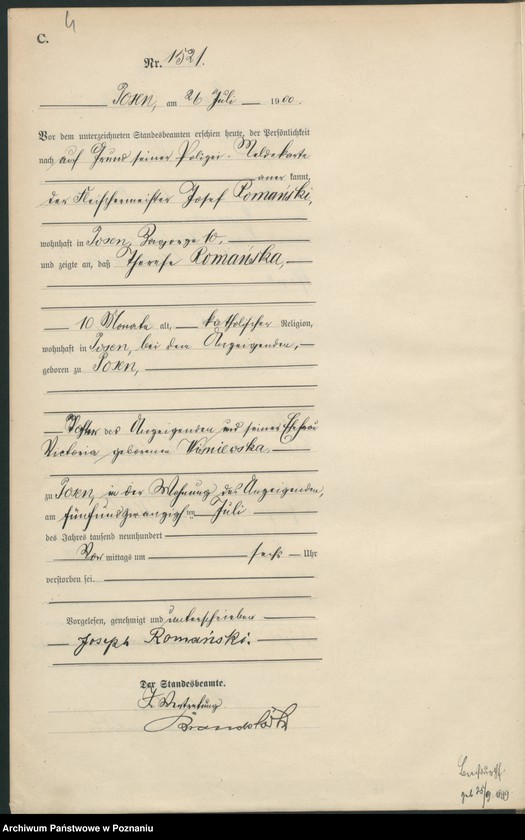 4
C.
Nr. 1521.
Posen, am 26 Juli 1900.
Vor dem unterzeichneten Standesbeamten erschien heute, der Persönlichkeit
nach auf Grund seiner Polizei-Meldekarte
aner kannt,
der Fleischermeister Josef Romański,
wohnhaft in Posen, Zagorze 10,
und zeigte an, daß Therese Romańska,
10 Monate alt, katholischer Religion,
wohnhaft in Posen, bei dem Anzeigenden,
geboren zu Posen,
Tochter des Anzeigenden und seiner Ehefrau
Victoria geborenen Wiśniewska,
zu Posen, in der Wohnung des Anzeigenden,
am fünfundzwanzigsten Juli
des Jahres tausend neunhundert
Vor mittags um sechs Uhr
verstorben sei.
Vorgelesen, genehmigt und unterschrieben
Joseph Romański.
Der Standesbeamte.
In Vertretung
geb
Archiwum Państwowe w Poznaniu